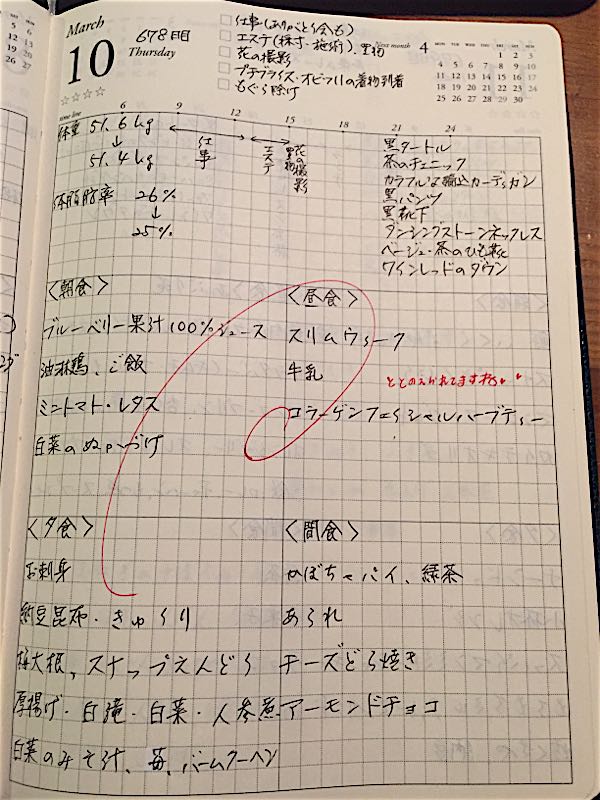 March
10
Thursday
678日目
□ 仕事(ありがとう会も)
□ エステ(採寸・施術)、買物
□ 花の撮影
□ プチブライス・オビツ11の着物到着
□ もぐら除け
Next month 4
MON TUE WED THU FRI SAT SUN
1 2 3
4 5 6 7 8 9 10
11 12 13 14 15 16 17
18 19 20 21 22 23 24
25 26 27 28 29 30
☆☆☆☆
time line 6 9 12 15 18 21 24
体重 51.6kg
↓
51.4kg
仕事
エステ
買物
花の撮影
体脂肪率 26%
↓
25%
黒タートル
茶のチュニック
カラフルな編込カーディガン
黒パンツ
黒靴下
ダンシングストーンネックレス
ベージュ・茶のひも靴
ワインレッドのダウン
<朝食>
ブルーベリー果汁100%ジュース
油淋鶏、ご飯
ミニトマト・レタス
白菜のぬか漬け
<昼食>
スリムウォーク
牛乳
ととのえられてますね♥♥
コラーゲンフェイシャルハーブティー
<夕食>
お刺身
納豆昆布・きゅうり
桜大根、スナップえんどう
厚揚げ・白滝・白菜・人参煮
白菜のみそ汁、苺、バームクーヘン
<間食>
かぼちゃパイ、緑茶
あられ
チーズどら焼き
アーモンドチョコ